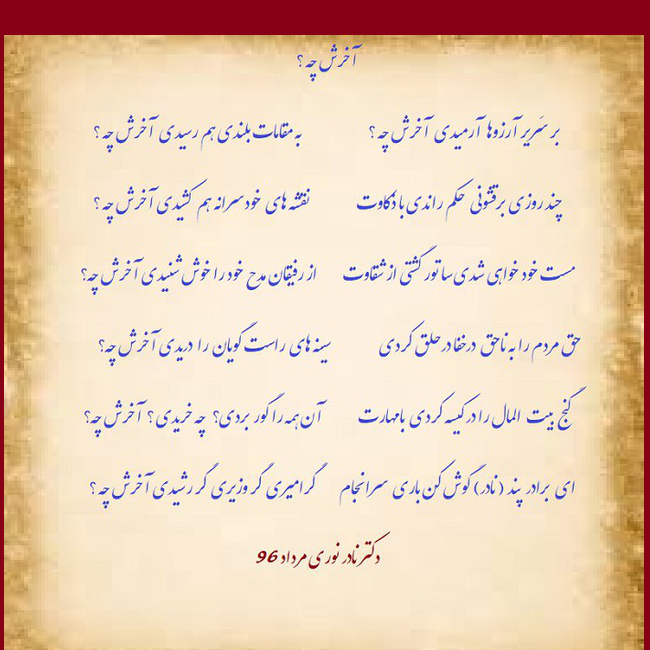 آخرش چه ؟
بر سَریر آرزوها آرمیدی آخرش چه ؟ به مقامات بلندی هم رسیدی آخرش چه ؟
چند روزی بر قشونی حکم راندی با ذکاوت نقشه های خودسرانه هم کشیدی آخرش چه ؟
مست خود خواهی شدی ساتور گشتی از شقاوت از رفیقان مدح خود را خوش شنیدی آخرش چه؟
حق مردم را به ناحق در خفا در حلق کردی سینه های راست گویان را دریدی آخرش چه؟
گنج بیت المال را در کیسه کردی بامهارت آن همه را گور بردی؟ چه خریدی؟ آخرش چه؟
ای برادر پند (نادر) گوش کن باری سرانجام گر امیری گر وزیری گر رشیدی آخرش چه ؟
دکتر نادر نوری مرداد 96